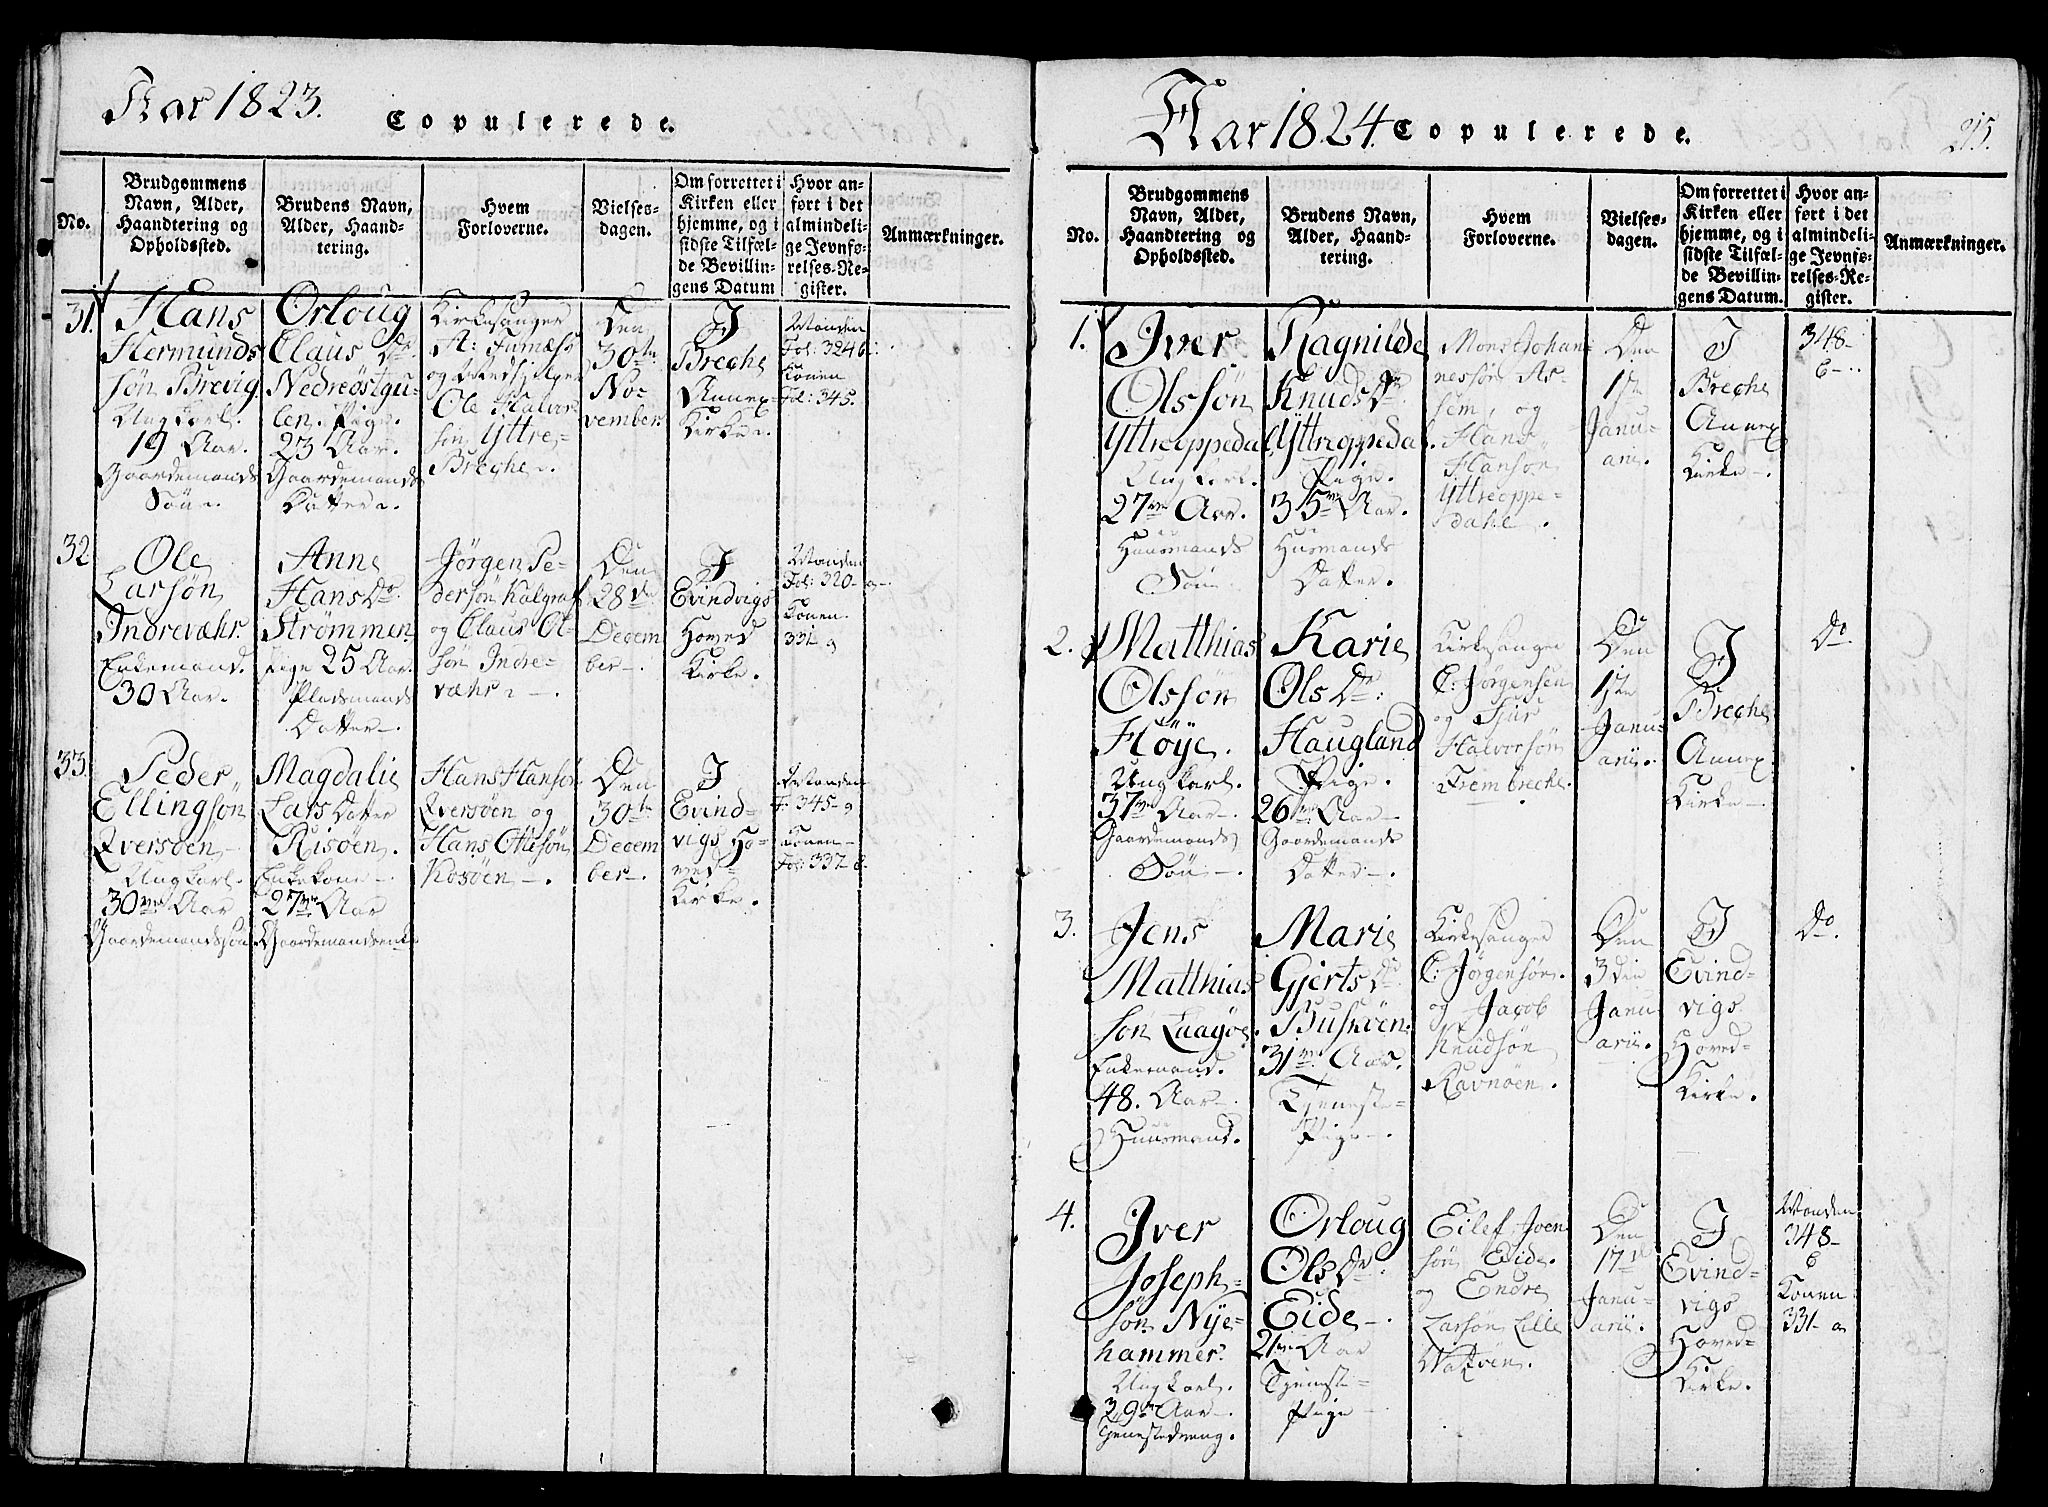 Aar 1823.
Copulerede.
No.
Brudgommens
Navn, Alder,
Haandtering og
Opholdssted.
Brudens Navn,
Alder, Haand-
tering.
Hvem
Forloverne.
Vielses-
dagen.
Om forrettet i
Kirken eller
hjemme, og i
sidste Tilfæl-
de Bevillin-
gens Datum
Hvor an-
ført i det
almindeli-
ge Jevnfø-
relses-Re-
gister.
Anmærkninger.
31.
Hans
Hermunds
søn Brevig
Ungkarl.
19 Aar.
Gaardemands
Søn.
Orloug
Claus Dr.
Nedreøstgu-
len. Pige.
23 Aar.
Gaardemands
Datter.
Kirkesanger
A:
og Medhjelper
Ole Halvor
søn Yttre-
Breche.
Den
30te
No-
vember.
I
Breche
Annex
Kirke.
Manden
Fol: 324 b.
Konen
Fol: 345.
32.
Ole
Larsøn
Indrevæhr.
Enkemand.
30 Aar.
Anne
Hans Dr.
Strømmen
Pige 25 Aar.
Pladsmands
Datter.
Jørgen Pe-
dersøn Kalgraf
og Claus Ol-
søn Indre-
væhr.
Den
28de
Decem
ber.
I
Evindvigs
Hoved
Kirke.
Manden
Fol: 320- a
Konen
331- a
33.
Peder
Ellingsøn
Qversøen
Ungkarl.
30 Aar
Gaardemandssøn
Magdalie
Lars Datter
Risøen.
Enkekone.
27 Aar
Gaardemandsenke.
Hans Hansøn
Qversøen og
Hans Ottesøn
Kosøen.
Den
30te
Decem
ber.
I
Evind-
vigs Ho-
ved-
Kirke.
Manden
F: 345- a
Konen
Fol: 337- b.
Aar 1824.
Copulerede.
215.
No.
Brudgommens
Navn, Alder,
Haandtering og
Opholdssted.
Brudens Navn,
Alder, Haand-
tering.
Hvem
Forloverne.
Vielses-
dagen.
Om forrettet i
Kirken eller
hjemme, og i
sidste Tilfæl-
de Bevillin-
gens Datum.
Hvor an-
ført i det
almindeli-
ge Jevnfø-
relses-Re-
gister.
Anmærkninger.
1.
Iver
Olssøn
Yttreoppedal
Ungkarl.
27 Aar.
Huusmands
Søn
Ragnilde
Knuds Dr.
Yttreoppedal.
Pige.
35 Aar.
Husmands
Datter.
Mons Johan-
nessøn As-
sem, og
Hans
Hansøn
Yttreoppe-
dahl.
Den
1ste
Janu-
arii.
I
Breche
Annex
Kirke.
348-
b
2.
Matthias
Olssøn
Høye.
Ungkarl.
37 Aar.
Gaardemands
Søn.
Karie
Ols Dr:
Haugland
Pige.
26 Aar
Gaardemands
Datter.
Kirkesanger
C: Jørgensen
og Sjur
Halvorsøn
Frembreche.
Den
1ste
Janu-
arii.
I
Breche
Annex
Kirke.
Do.
3.
Jens
Matthias
søn Laagøe.
Enkemand.
48. Aar.
Huusmand.
Marie
Gjerts Dr.
Buskøen.
31 Aar.
Tjeneste-
Pige.
Kirkesanger
C: Jørgensøn.
og Jacob
Knudsøn
Ravnøen.
Den
3die
Janu
arii.
I
Evind-
vigs
Hoved-
Kirke.
Do.
4.
Iver
Joseph-
søn Nye-
hammer.
Ungkarl.
29 Aar.
Tjenestedreng.
Orloug
Ols Dr.
Eide.
21 Aar
Tjeneste-
Pige
Eilef Joen
søn Eide.
og Endre
Larsøn Lille
Den
17de
Janu-
arii.
I
Evind-
vigs
Hoved-
Kirke.
Manden
348-
b
Konen
331- a